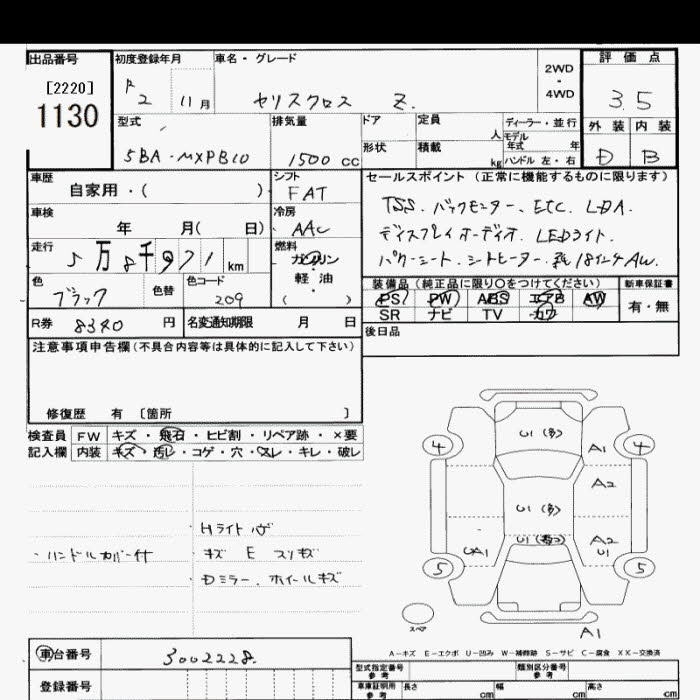 出品番号
[2220]
1130
初度登録年月
R 2 11月
車名・グレード
ヤリスクロス Z.
2WD
・
4WD
評価点
3.5
外装 内装
D B
型式
5BA-MXPB10
排気量
1500 cc
ドア
形状
定員
人
積載
kg
ディーラー・並行
モデル年式 年
ハンドル 左・右
車歴
自家用・( )
シフト
FAT
車検
年 月( 日)
冷房
AAC
走行
5万8千971 km
燃料
ガソリン
軽・油
( ・ )
色
ブラック
色替
色コード
209
R券 8340 円
名変通知期限 月 日
セールスポイント (正常に機能するものに限ります)
TSS. バックモニター. ETC. LDA.
ディスプレイオーディオ. LEDライト.
パワーシート. シートヒーター. 純18インチAW.
装備品(純正品に限り〇をつけてください)
新車保証書
PS PW ABS エアB AW
有・無
SR ナビ TV カワ
後日品
注意事項申告欄(不具合内容等は具体的に記入して下さい)
修復歴 有 〔箇所 〕
検査員 FW キズ・飛石・ヒビ割・リペア跡・×要
記入欄 内装 キズ・汚レ・コゲ・穴・スレ・キレ・破レ
・ハンドルカバー付
Hライト
キズ E スリキズ
Dミラー. ホイールキズ
U1 (多)
4
A1
4
A2
U1 (多)
U1
A2
UA1
U1
5
5
スペア
A1
A-キズ E-エクボ U-凹み W-補修跡 S-サビ C-腐食 XX-交換済
車台番号 3002228.
登録番号
型式指定番号
参考
類別区分番号
参考
車庫証明用
参考
長さ cm
幅 cm
高さ cm